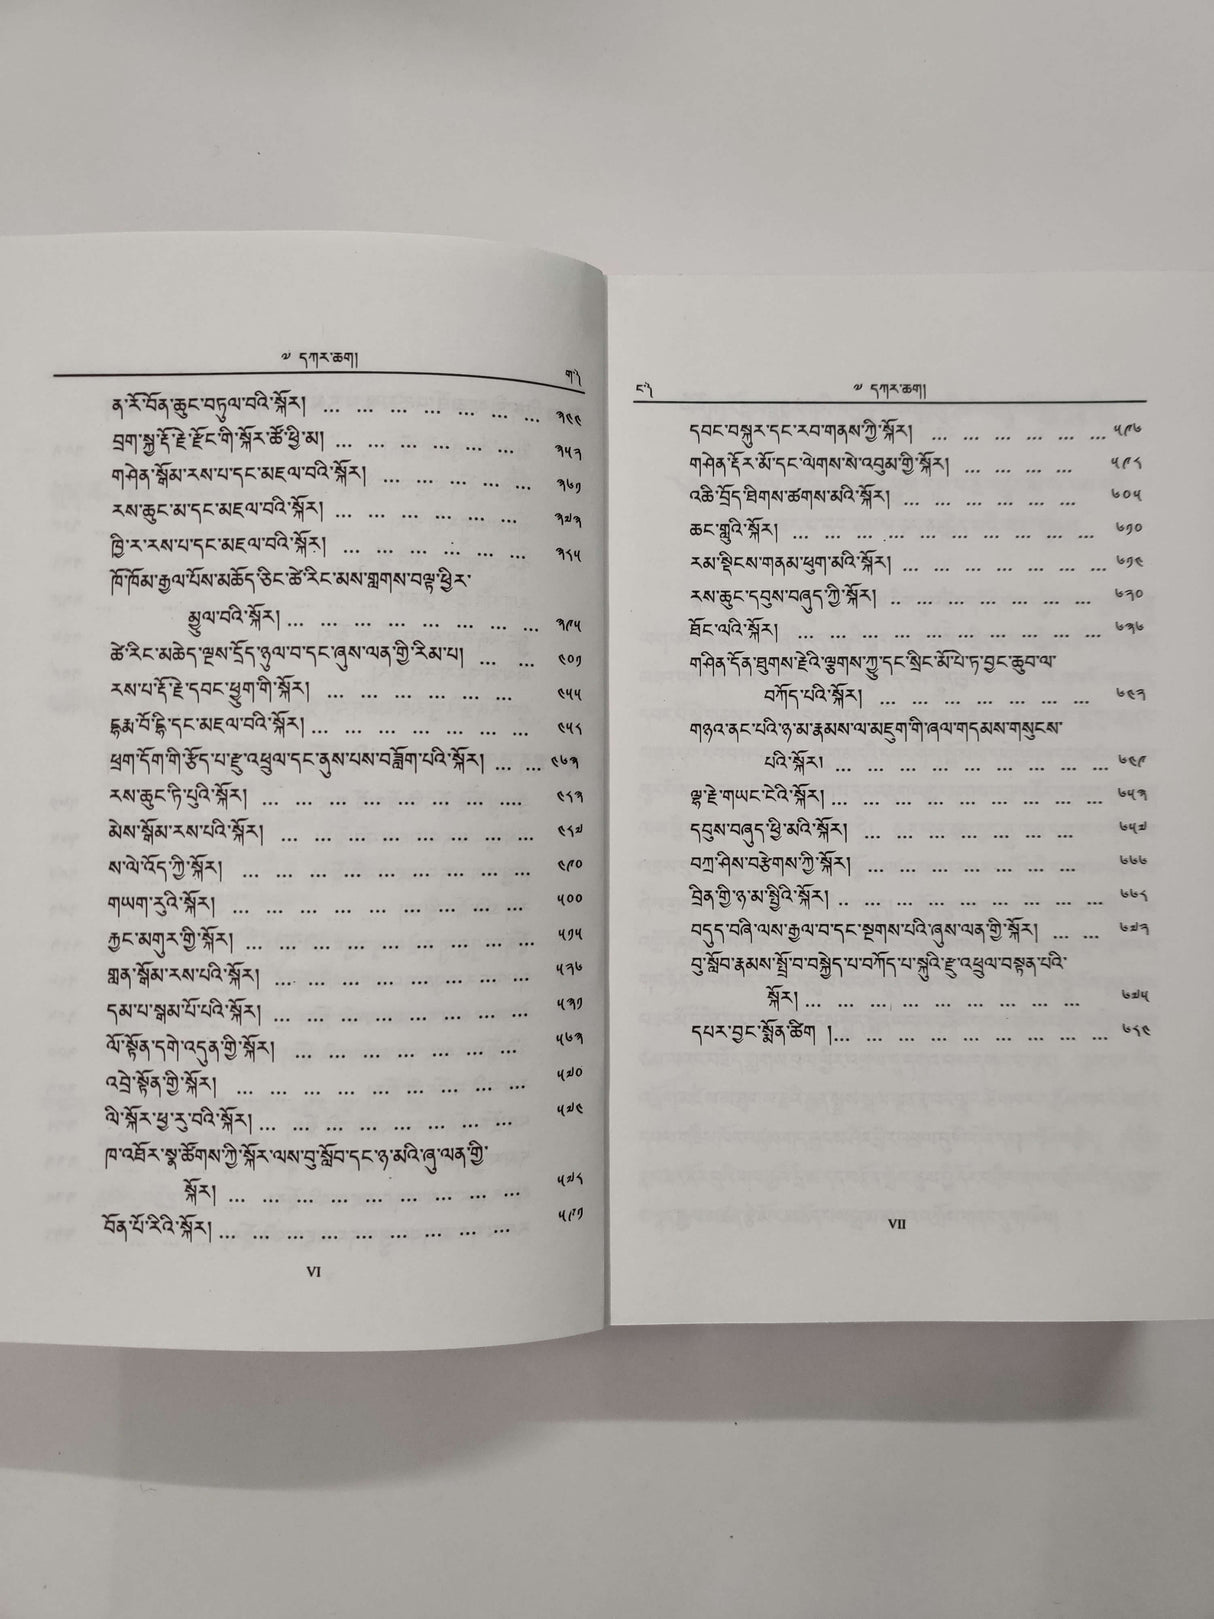 ༧ དཀར་ཆག།
ག༽
ན་རོ་བོན་ཆུང་བཏུལ་བའི་སྐོར། ... ... ... ... ... ... ... ༣༤༤
བྲག་སྐྱ་རྡོ་རྗེ་རྫོང་གི་སྐོར་ཚོ་ཕྱི་མ། ... ... ... ... ... ... ༣༥༢
གཤེན་སྒོམ་རས་པ་དང་མཇལ་བའི་སྐོར། ... ... ... ... ... ༣༦༡
རས་ཆུང་མ་དང་མཇལ་བའི་སྐོར། ... ... ... ... ... ... ༣༧༣
ཁྱི་ར་རས་པ་དང་མཇལ་བའི་སྐོར། ... ... ... ... ... ... ༣༨༥
ཁོ་ཁོམ་རྒྱལ་པོས་མཆོད་ཅིང་ཚེ་རིང་མས་གླགས་བལྟ་ཕྱིར་
མྱུལ་བའི་སྐོར། ... ... ... ... ... ... ... ... ༣༩༥
ཚེ་རིང་མཆེད་ལྔས་དྲོད་ཉུལ་བ་དང་ཞུས་ལན་གྱི་རིམ་པ། ... ... ༤༠༡
རས་པ་རྡོ་རྗེ་དབང་ཕྱུག་གི་སྐོར། ... ... ... ... ... ... ༤༥༥
དྷརྨ་བོ་དྷི་དང་མཇལ་བའི་སྐོར། ... ... ... ... ... ... ... ༤༥༨
ཕྲག་དོག་གི་རྩོད་པ་རྫུ་འཕྲུལ་དང་ནུས་པས་བཟློག་པའི་སྐོར། ... ... ༤༦༣
རས་ཆུང་ཏི་པུའི་སྐོར། ... ... ... ... ... ... ... .... ༤༨༣
མེས་སྒོམ་རས་པའི་སྐོར། ... ... ... ... ... ... ... ... ༤༨༧
ས་ལེ་འོད་ཀྱི་སྐོར། ... ... ... ... ... ... ... ... ... ༤༩༠
གཡག་རུའི་སྐོར། ... ... ... ... ... ... ... ... ... ༥༠༠
རྐྱང་མགུར་གྱི་སྐོར། ... ... ... ... ... ... ... ... ... ༥༡༥
གླན་སྒོམ་རས་པའི་སྐོར། ... ... ... ... ... ... ... ... ༥༢༦
དམ་པ་སྒམ་པོ་པའི་སྐོར། ... ... ... ... ... ... ... ... ༥༣༡
ལོ་སྟོན་དགེ་འདུན་གྱི་སྐོར། ... ... ... ... ... ... ... ༥༦༣
འབྲེ་སྟོན་གྱི་སྐོར། ... ... ... ... ... ... ... ... ... ༥༧༠
ལི་སྐོར་ཕྱ་རུ་བའི་སྐོར། ... ... ... ... ... ... ... ... ༥༧༤
ཁ་འཐོར་སྣ་ཚོགས་ཀྱི་སྐོར་ལས་བུ་སློབ་དང་ཉ་མའི་ཞུ་ལན་གྱི་
སྐོར། ... ... ... ... ... ... ... ... ... ༥༧༨
བོན་པོ་རིའི་སྐོར། ... ... ... ... ... ... ... ... ... ༥༩༡
VI
ང༽
༧ དཀར་ཆག།
དབང་བསྐུར་དང་རབ་གནས་ཀྱི་སྐོར། ... ... ... ... ... ... ༥༩༦
གཤེན་རྡོར་མོ་དང་ལེགས་སེ་འབུམ་གྱི་སྐོར། ... ... ... ... ༥༩༨
འཆི་བྲོད་ཐིགས་ཚགས་མའི་སྐོར། ... ... ... ... ... ... ༦༠༥
ཆང་གླུའི་སྐོར། ... ... ... ... ... ... ... ... ... ... ༦༡༠
རམ་སྡིངས་གནམ་ཕུག་མའི་སྐོར། ... ... ... ... ... ... ... ༦༡༤
རས་ཆུང་དབུས་བཞུད་ཀྱི་སྐོར། .. ... ... ... ... ... ... ༦༢༠
ཐོང་ལའི་སྐོར། ... ... ... ... ... ... ... ... ... ... ༦༣༦
གཤིན་དོན་ཐུགས་རྗེའི་ལྕགས་ཀྱུ་དང་སྲིང་མོ་པེ་ཏ་བྱང་ཆུབ་ལ་
བཀོད་པའི་སྐོར། ... ... ... ... ... ... ... ༦༤༢
གཉའ་ནང་པའི་ཉ་མ་རྣམས་ལ་མཇུག་གི་ཞལ་གདམས་གསུངས་
པའི་སྐོར། ... ... ... ... ... ... ... ... ... ༦༤༩
ལྷ་རྗེ་གཡང་ངེའི་སྐོར། ... ... ... ... ... ... ... ... ... ༦༥༣
དབུས་བཞུད་ཕྱི་མའི་སྐོར། ... ... ... ... ... ... ... ༦༥༧
བཀྲ་ཤིས་བརྩེགས་ཀྱི་སྐོར། ... ... ... ... ... ... ... ༦༦༦
བྲིན་གྱི་ཉ་མ་སྤྱིའི་སྐོར། .. ... ... ... ... ... ... ... ... ༦༦༨
བདུད་བཞི་ལས་རྒྱལ་བ་དང་སྔགས་པའི་ཞུས་ལན་གྱི་སྐོར། ... ... ༦༧༢
བུ་སློབ་རྣམས་སྤྲོ་བ་བསྐྱེད་པ་བཀོད་པ་སྐུའི་རྫུ་འཕྲུལ་བསྟན་པའི་
སྐོར། ... ... ... ... ... ... ... ... ... ༦༧༥
དཔར་བྱང་སྨོན་ཚིག །... ... ... ... ... ... ... ... ... ༦༨༤
VII